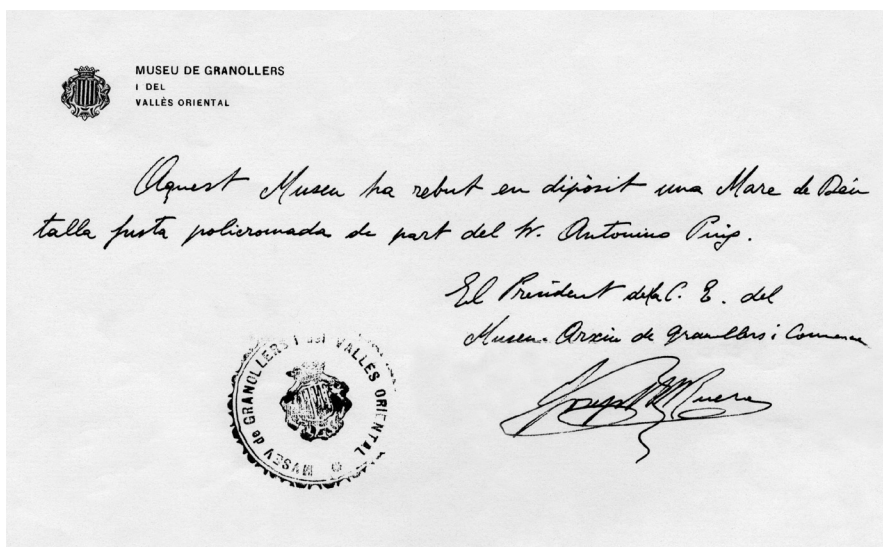 MUSEU DE GRANOLLERS
I DEL
VALLÈS ORIENTAL
Aquest Museu ha rebut en dipòsit una Mare de Déu
talla fusta policromada de part del Sr. Antonino Puig.
El President de la C. E. del
Museu-Arxiu de Granollers i Comarca
MVSEV de GRANOLLERS I del VALLES ORIENTAL